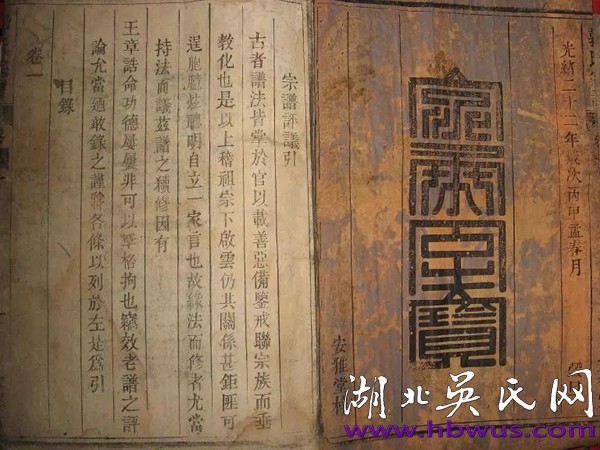 光緒二十二年歲次丙申孟春月
安雅堂梓
宗譜評議引
古者譜法皆掌於官以載善惡備鑒戒聯宗族而垂
教化也是以上稽祖宗下啟雲仍其關係甚鉅匪可
逞胸臆炫聰明自立一家言也故緣法而修者尤當
持法而議茲譜之續修因有
王章誥命功德屢屢非可以常格拘也竊效老譜之評
論允當廼敢錄之謹將各條以列於左是為引
目錄
卷一
湖北吴氏网
www.hbwus.com